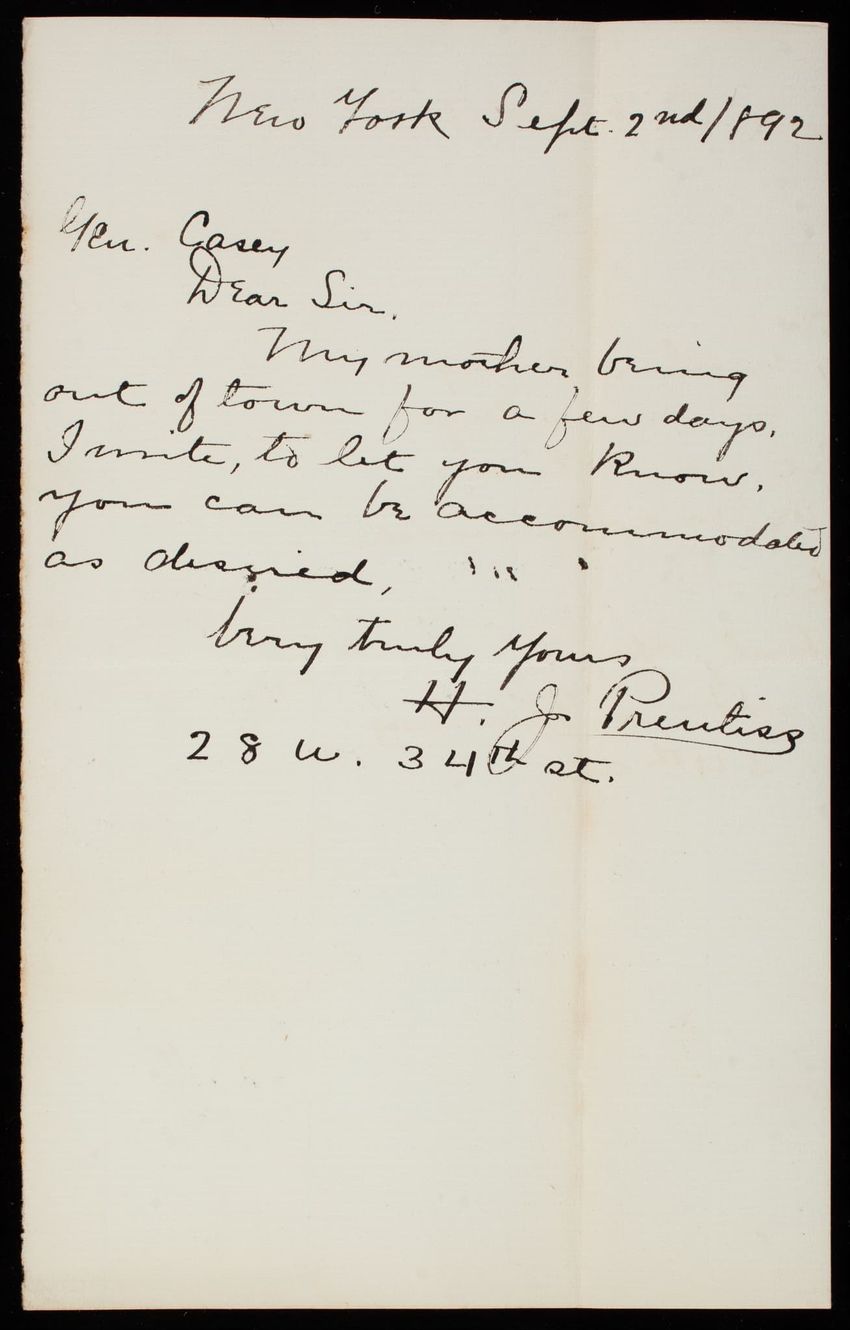 New York Sept. 2nd/1892
Gen. Casey
Dear Sir.
My mother being
out of town for a few days,
I write, to let you know,
you can be accommodated
as desired,
Very truly yours
H. J. Prentiss
28 W. 34th st.